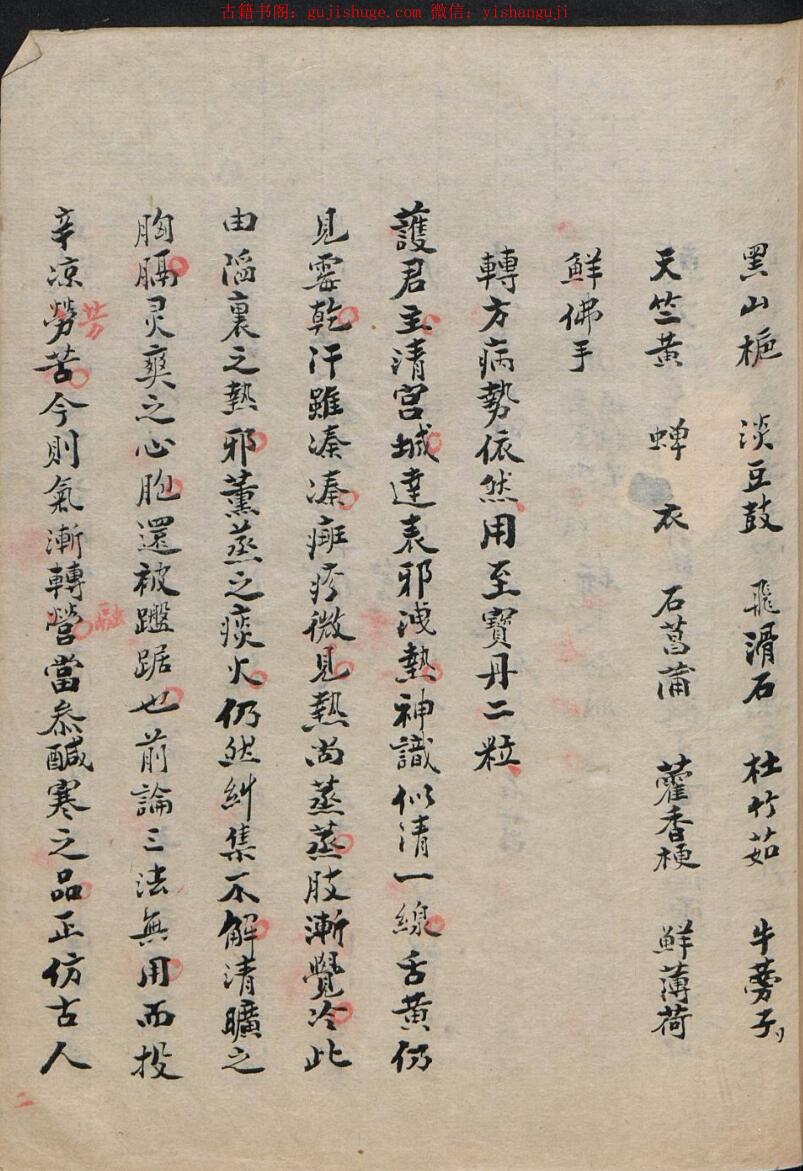 古籍书阁：gujishuge.com 微信：yishanguji
黑山栀 淡豆鼓 飛滑石 杜竹茹 牛蒡子
天竺黄 蝉衣 石菖蒲 藿香梗 鮮薄荷
鮮佛手
轉方病勢依然用至寶丹二粒
護君主清宮城達表邪洩熱神識似清一線舌黄仍
見霉乾汗雖湊湊㾦疹微見熱尚蒸蒸肢漸覺冷此
由滔裏之熱邪薰蒸之痰火仍然糾集不解清曠之
胸膈灵爽之心胞還被躔踞也前論三法無用而投
辛凉勞苦今則氣漸轉營當叅醎寒之品正仿古人
芳
融
二